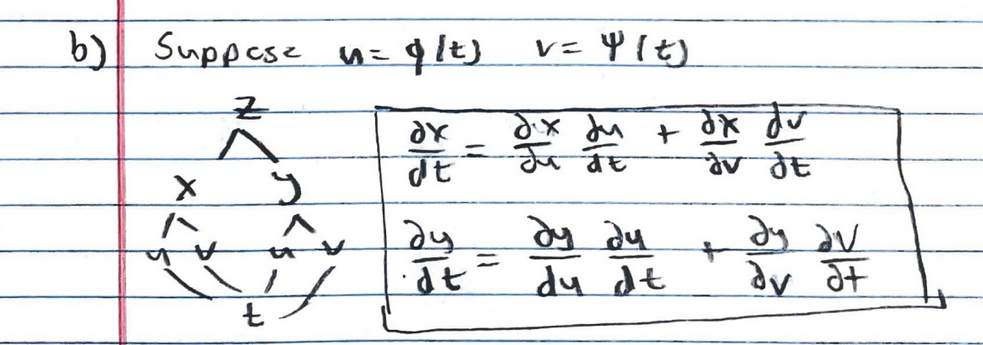 b) Suppose u = φ(t) v = Ψ(t)
Z
x y
u v u v
t
∂x/dt = ∂x/∂u du/dt + ∂x/∂v dv/dt
∂y/dt = ∂y/du ∂u/dt + ∂y/∂v ∂v/∂t